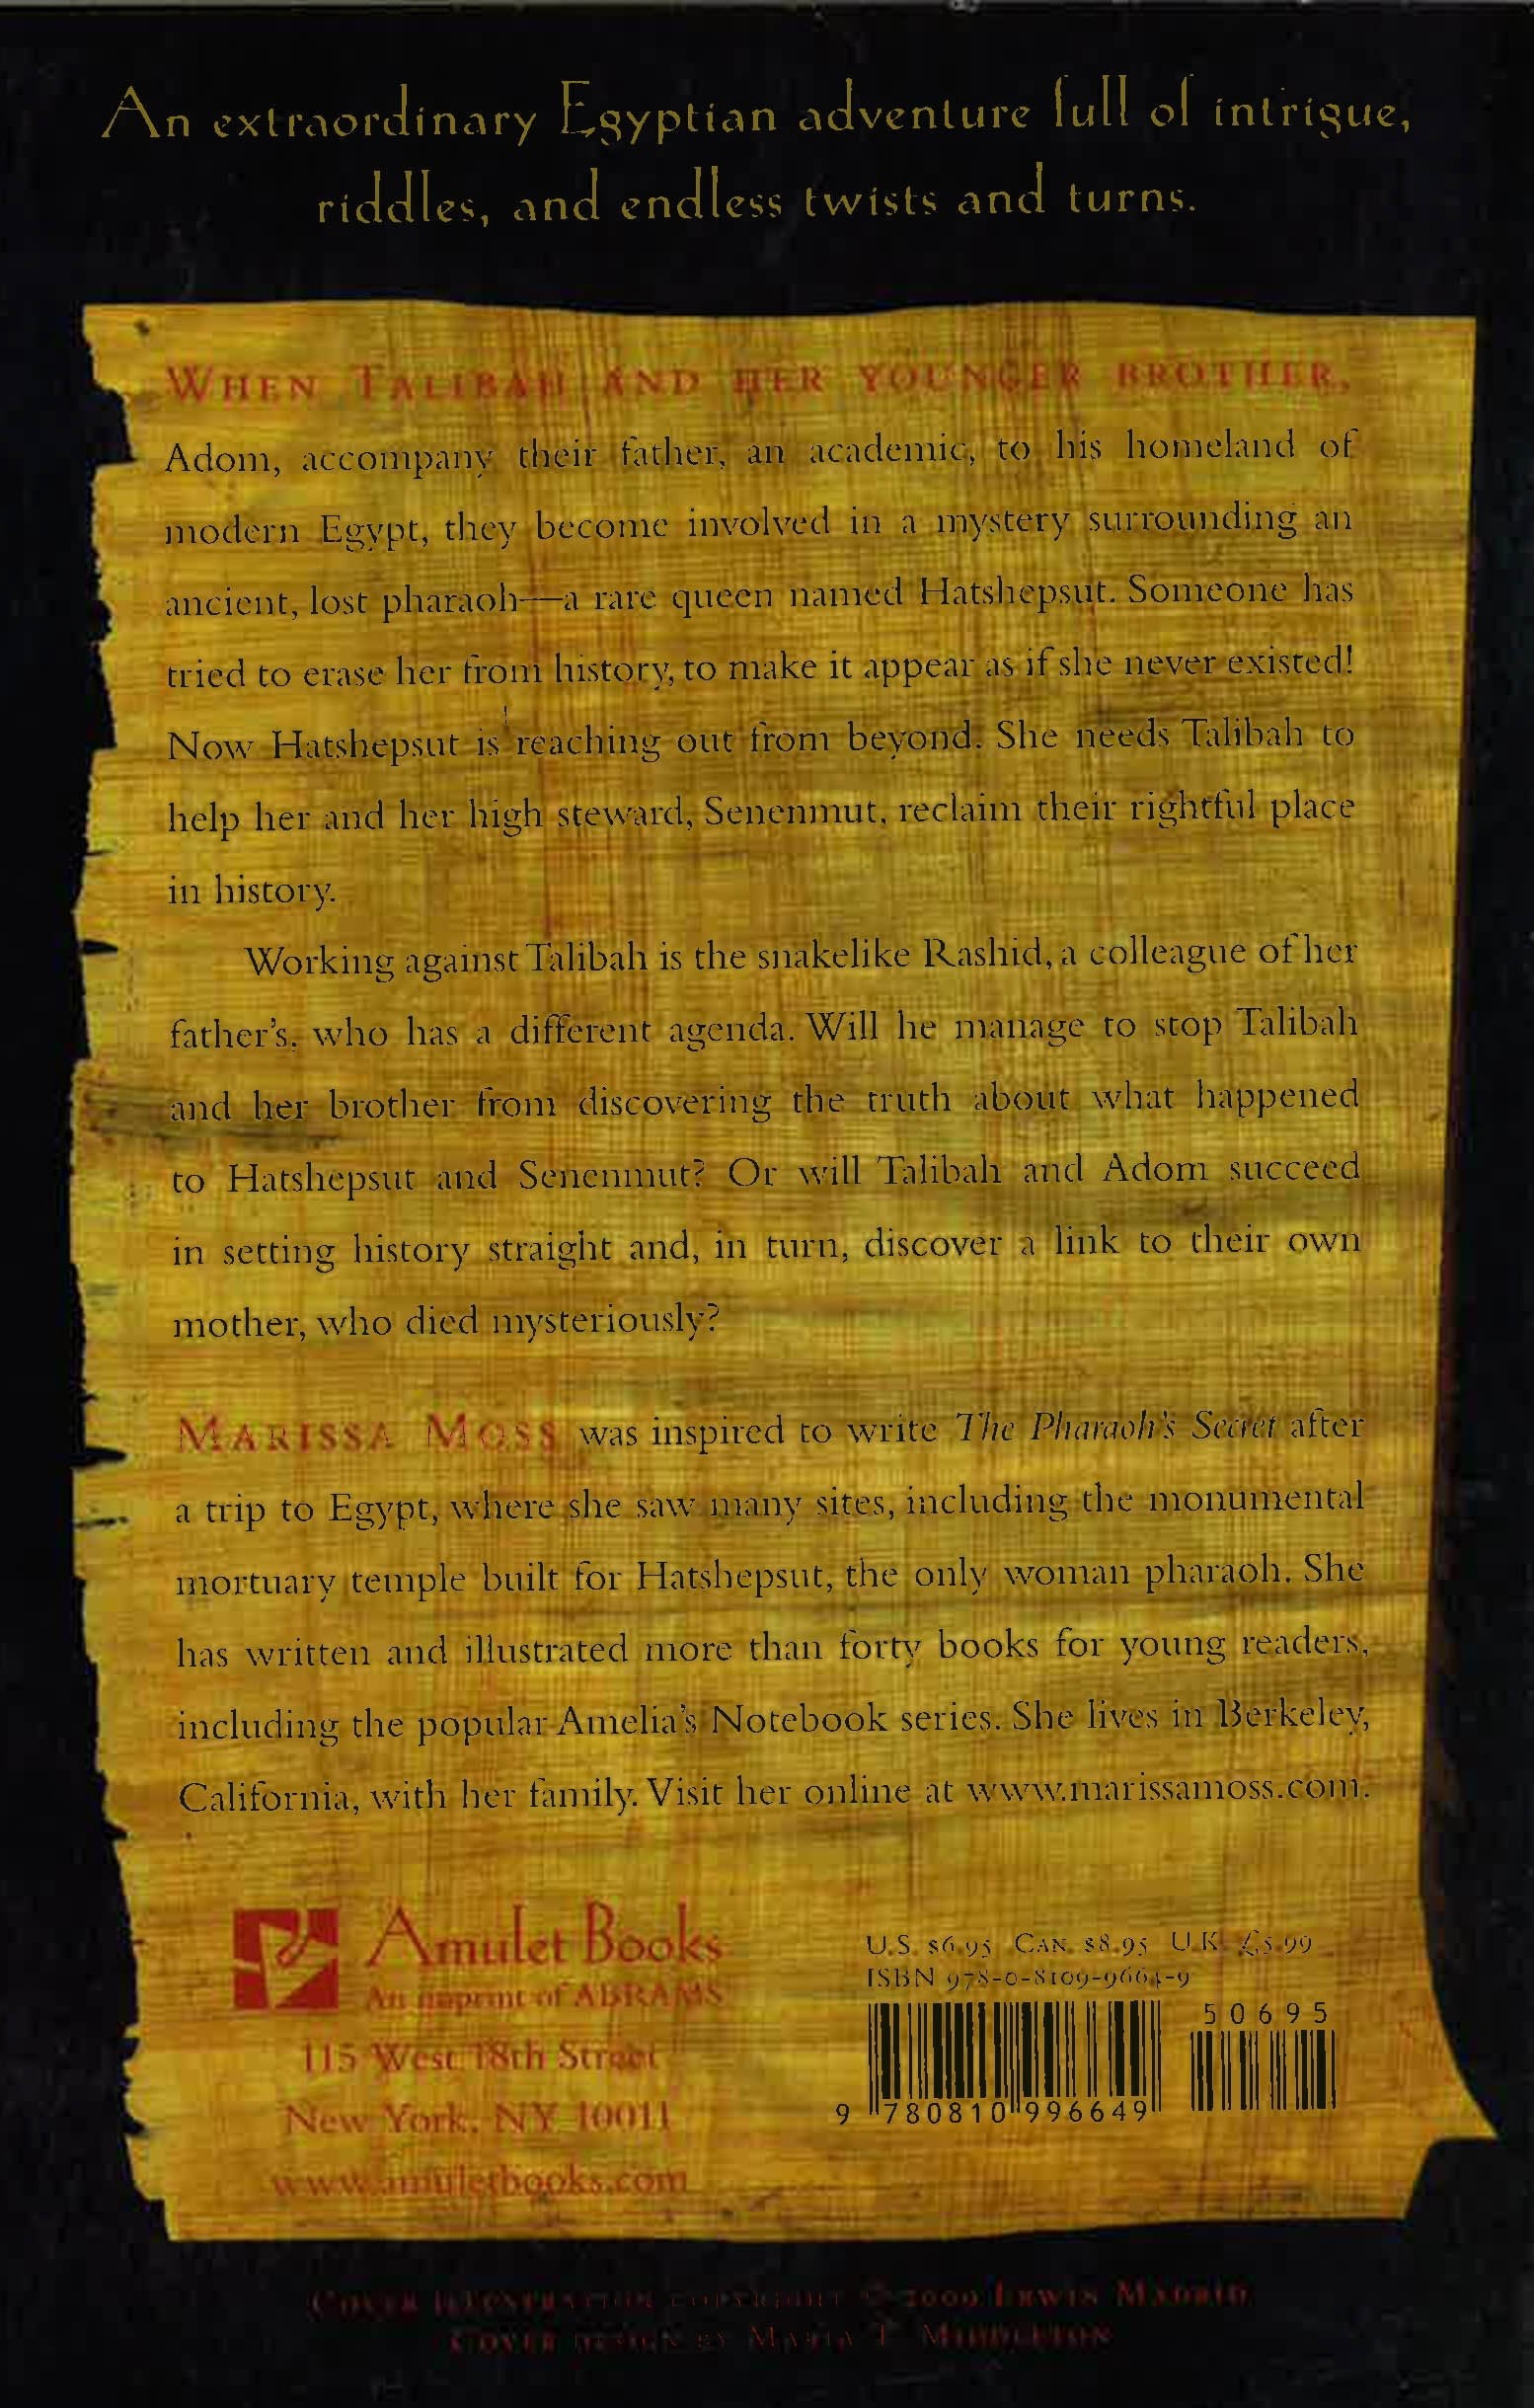 An extraordinary Egyptian adventure full of intrigue,
riddles, and endless twists and turns.
WHEN TALIBAH AND HER YOUNGER BROTHER,
Adom, accompany their father, an academic, to his homeland of
modern Egypt, they become involved in a mystery surrounding an
ancient, lost pharaoh—a rare queen named Hatshepsut. Someone has
tried to erase her from history, to make it appear as if she never existed!
Now Hatshepsut is reaching out from beyond. She needs Talibah to
help her and her high steward, Senenmut, reclaim their rightful place
in history.
Working against Talibah is the snakelike Rashid, a colleague of her
father's, who has a different agenda. Will he manage to stop Talibah
and her brother from discovering the truth about what happened
to Hatshepsut and Senenmut? Or will Talibah and Adom succeed
in setting history straight and, in turn, discover a link to their own
mother, who died mysteriously?
MARISSA MOSS was inspired to write The Pharaoh's Secret after
a trip to Egypt, where she saw many sites, including the monumental
mortuary temple built for Hatshepsut, the only woman pharaoh. She
has written and illustrated more than forty books for young readers,
including the popular Amelia's Notebook series. She lives in Berkeley,
California, with her family. Visit her online at www.marissamoss.com.
Amulet Books
An imprint of ABRAMS
115 West 18th Street
New York, NY 10011
www.amuletbooks.com
U.S. $6.95 CAN. $8.95 U.K. £5.99
ISBN 978-0-8109-9664-9
50695
9 780810 996649
COVER ILLUSTRATION COPYRIGHT © 2009 ERWIN MADRID
COVER DESIGN BY MARIA T. MIDDLETON